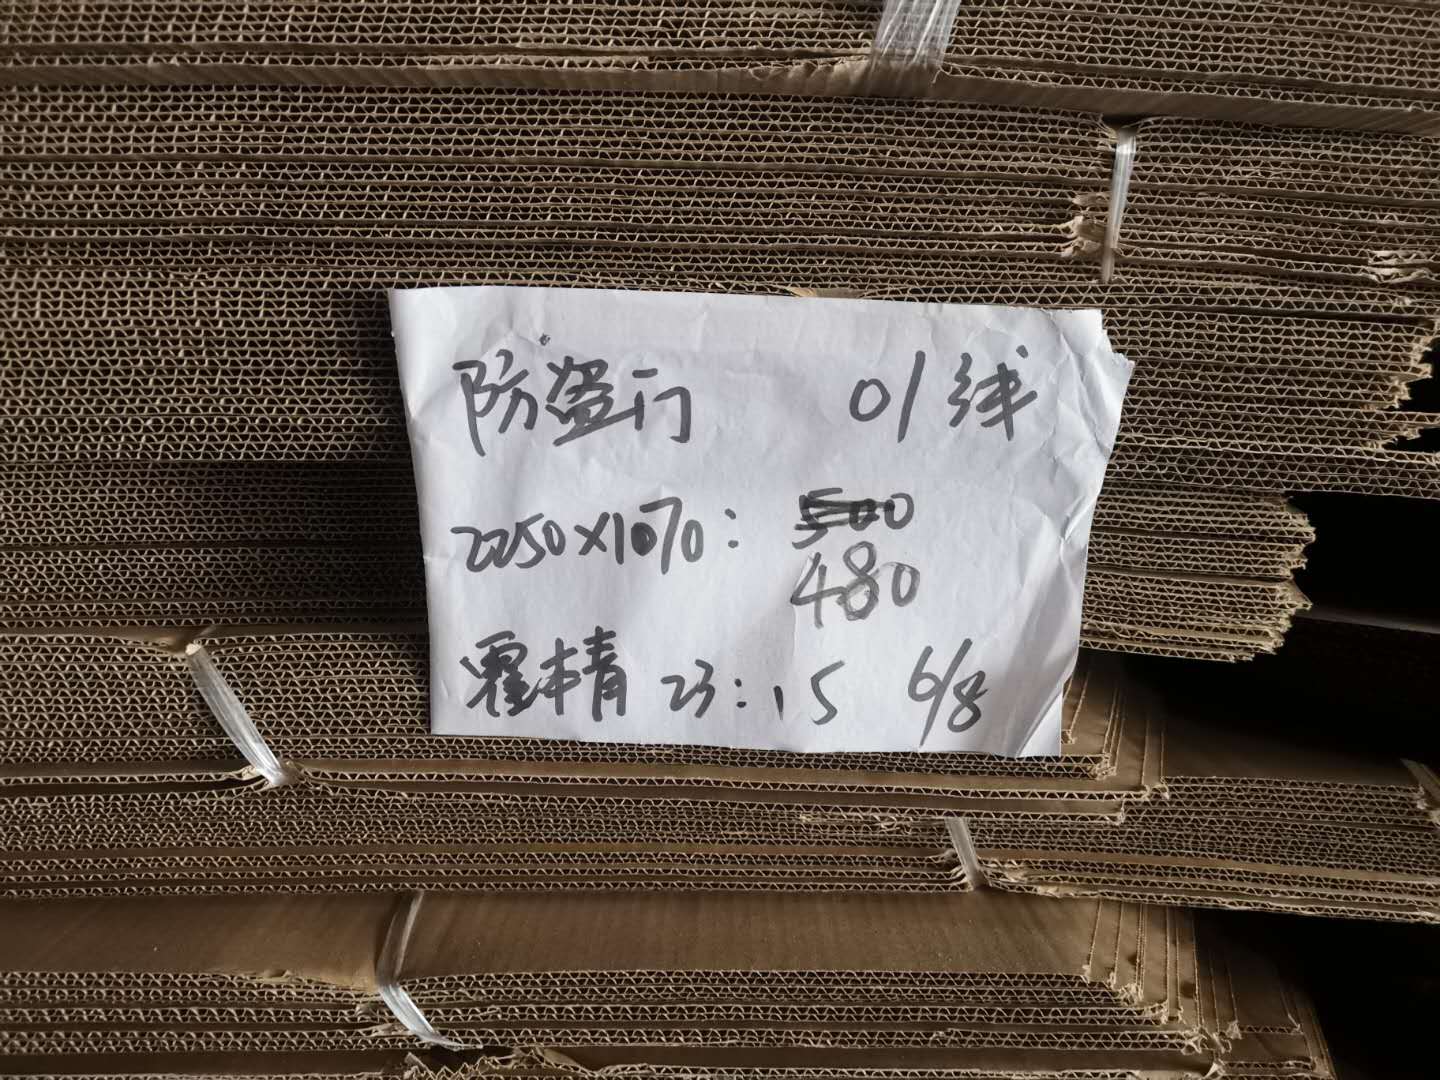 防盗门 01线
2250×1070: 500
480
霍本青 23:15 6/8